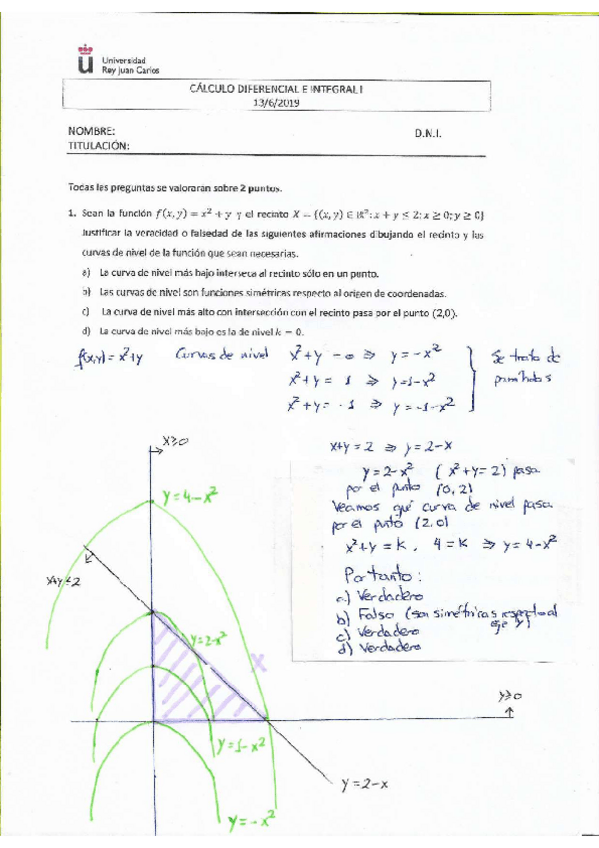 Universidad
Rey Juan Carlos
CÁLCULO DIFERENCIAL E INTEGRAL I
13/6/2019
NOMBRE: D.N.I.
TITULACIÓN:
Todas las preguntas se valoraran sobre 2 puntos.
1. Sean la función f(x,y) = x² + y y el recinto X = {(x,y) ∈ ℝ²: x + y ≤ 2; x ≥ 0; y ≥ 0}
Justificar la veracidad o falsedad de las siguientes afirmaciones dibujando el recinto y las
curvas de nivel de la función que sean necesarias.
a) La curva de nivel más bajo interseca al recinto sólo en un punto.
b) Las curvas de nivel son funciones simétricas respecto al origen de coordenadas.
c) La curva de nivel más alto con intersección con el recinto pasa por el punto (2,0).
d) La curva de nivel más bajo es la de nivel k = 0.
f(x,y) = x²+y Curvas de nivel x²+y = 0 ⇒ y = -x² Se trata de
x²+y = 1 ⇒ y = 1-x² parábolas
x²+y = -1 ⇒ y = -1-x²
x+y = 2 ⇒ y = 2-x
y = 2-x² (x²+y = 2) pasa
por el punto (0,2)
Veamos qué curva de nivel pasa
por el punto (2,0)
x²+y = k, 4 = k ⇒ y = 4-x²
Por tanto:
a) Verdadero
b) Falso (son simétricas respecto al
eje y)
c) Verdadero
d) Verdadero
x≥0
y = 4-x²
x+y ≤ 2
y = 2-x²
X
y≥0
y = 1-x²
y = 2-x
y = -x²